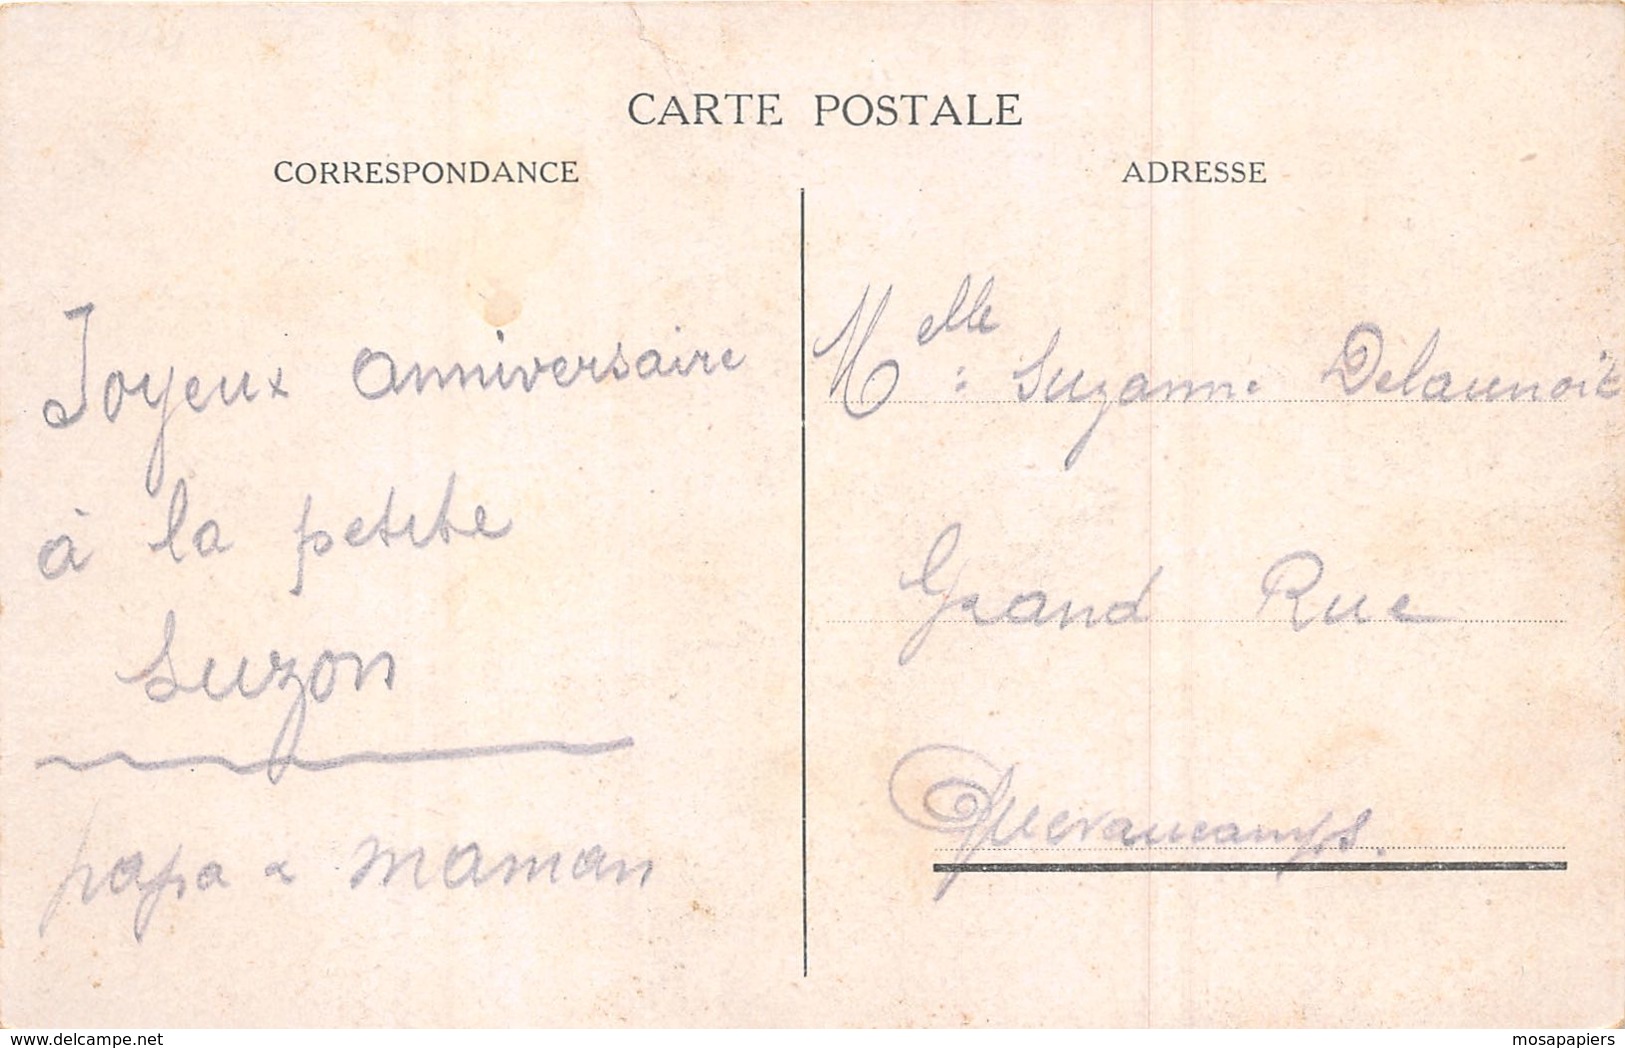 CARTE POSTALE
CORRESPONDANCE
Joyeux anniversaire
à la petite
Suzon
papa & maman
ADRESSE
Melle : Suzanne Delaunoit
Grand Rue
Quevaucamps.
www.delcampe.net
mosapapiers